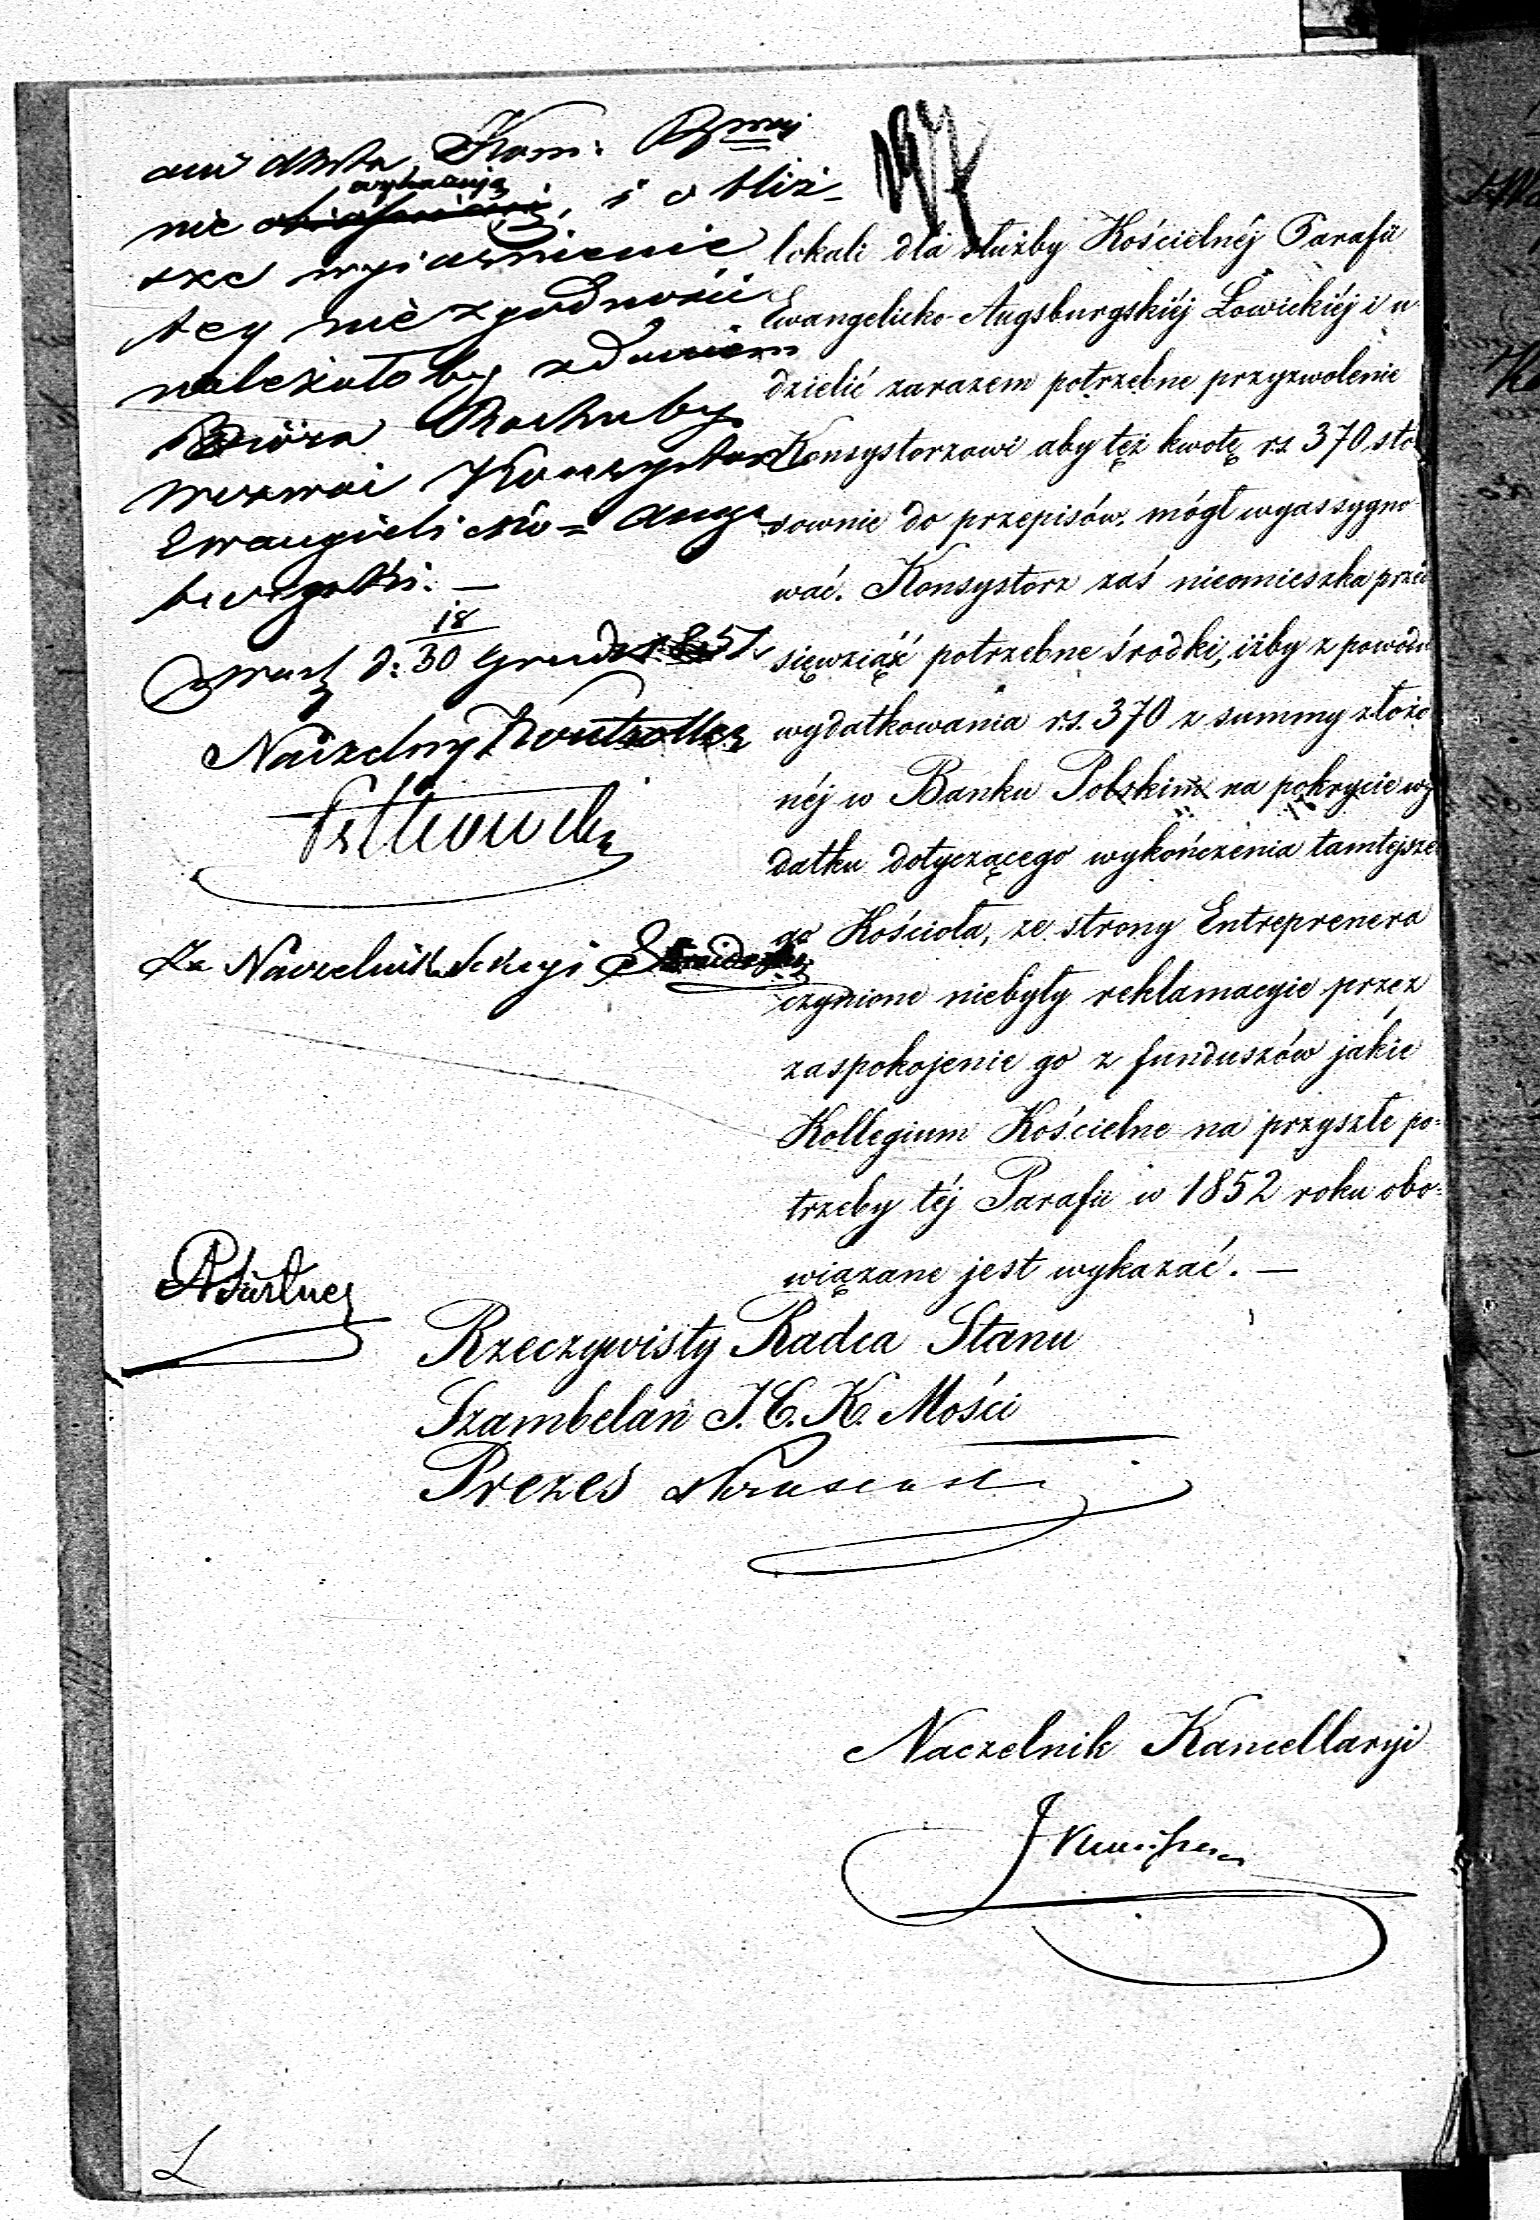 ani akta Kom: Rzwej
wykazują
nie, i o bliż-
sze wyjaśnienie
tey niezgodności
należałoby zdaniem
Bióra Rachuby
wezwać Konsystorz
Ewangielicko = Augs
burgski. —
Warsz d: 18/30 Grud 1851
Naczelny Kontroller
Za Naczelnik Sekcyi
197
lokali dla służby Kościelnéj Parafii
Ewangelicko-Augsburgskiéj Łowickiéj i u
dzielić zarazem potrzebne przyzwolenie
Konsystorzowi aby też kwotę rs. 370 sto
sownie do przepisów, mógł wyassygno
wać. Konsystorz zaś nieomieszka prze
sięwziąść potrzebne środki, iżby z powodu
wydatkowania rs. 370 z summy złożo
néj w Banku Polskim na pokrycie wy
datku dotyczącego wykończenia tamtejsze
go Kościoła, ze strony Entreprenera
czynione niebyły reklamacyie przez
zaspokojenie go z funduszów jakie
Kollegium Kościelne na przyszłe po=
trzeby téj Parafii w 1852 roku obo=
wiązane jest wykazać. —
Rzeczywisty Radca Stanu
Szambelan J. C. K. Mości
Prezes
Naczelnik Kancellaryi